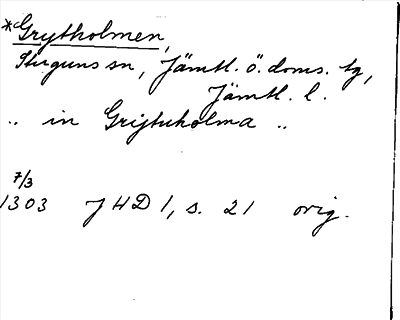 *Grytholmen,
Stuguns sn, Jämtl. ö. doms. tg,
Jämtl. l.
.. in Grijtuholma ..
7/3
1303 JHD 1, s. 21 orig.